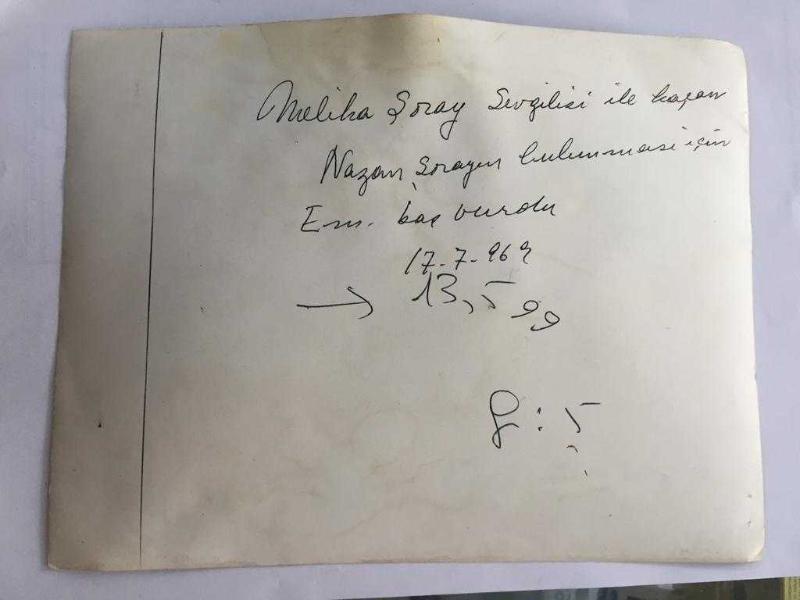 Meliha Şoray Sevgilisi ile kaçan
Nazan Şorayın bulunması için
Em. baş vurdu
17-7-969
→ 13,5 99
S : 5